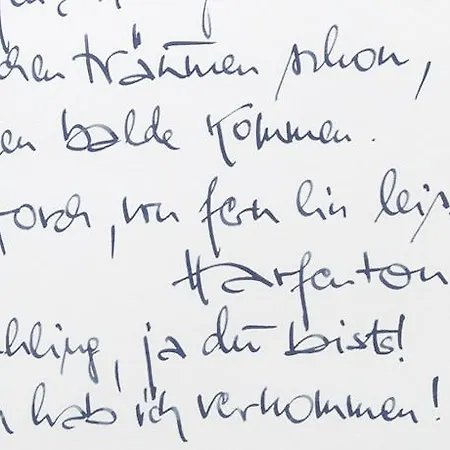 chen träumen schon,
en balde kommen.
orch, von fern ein leis
Harfenton
hling, ja du bists!
h hab ich vernommen!